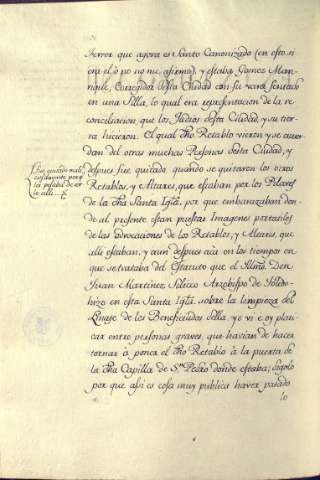 ferrer que agora es Santo Canonizado (en esto si
era el ò no no me afirmo) y estaba Gomez Man-
rique, Corregidor desta Ciudad con su vara sentado
en una Silla, lo qual era representacion de la re-
conciliacion, que los Judios desta Ciudad, y su tier-
ra hicieron. El qual dho Retablo vieron y se acuer-
dan del otras muchas Personas desta Ciudad, y
despues fue quitado quando se quitaron los otros
Retablos, y Altares, que estaban por los Pilares
de la dha Santa Iglª. por que embarazaban don-
de al presente estan puestas Imagenes portatiles
de las advocaciones de los Retablos, y Altares, que
alli estaban, y aun despues acà en los tiempos en
que se trataba del Estatuto que el Illmo. Don
Juan Martinez Siliceo Arzobispo de Toledo
hizo en esta Santa Iglª. sobre la limpieza del
Linage de los Beneficiados della, yo vi e oy plati-
car entre personas graves, que havian de hacer
tornar à poner el dho Retablo à la puerta de
la dha Capilla de Sn. Pedro donde estaba; digolo
por que assi es cosa muy publica haver pasado
lo
fue quitado mali-
ciosamente por q.
alli